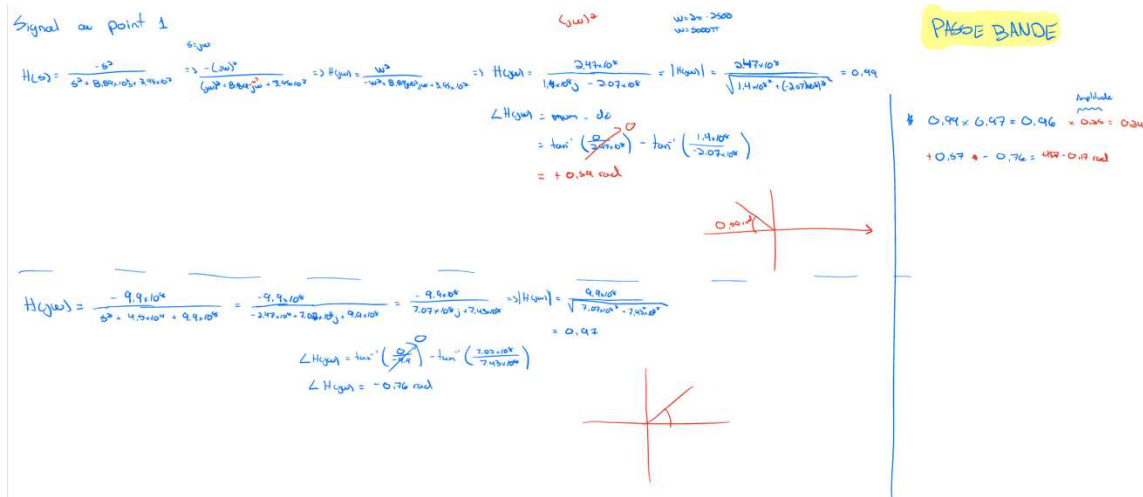 Signal au point 1
(jω)²
ω=2π·2500
ω=5000π
PASSE BANDE
s=jω
H(s) = -s² / s² + 8.89x10³s + 3.95x10⁷ => -(jω)² / (jω)² + 8.89·jω + 3.95x10⁷ => H(jω) = ω² / -ω² + 8.89x10³jω + 3.95x10⁷ => H(jω) = 2.47x10⁸ / 1.4x10⁸j - 2.07x10⁸ = |H(jω)| = 2.47x10⁸ / √1.4x10⁸² + (-2.07x10⁸)² = 0.99
∠H(jω) = num - de
= tan⁻¹ (0 / 2.47x10⁸) 0 - tan⁻¹ (1.4x10⁸ / -2.07x10⁸)
= +0,59 rad
0,59 rad
Amplitude
0,99 x 0,97 = 0,96 x 0.25 = 0.24
+0,57 - 0,76 = -0,17 rad
H(jω) = -9.9x10⁸ / s² + 4.5x10⁴ + 9.9x10⁸ = -9.9x10⁸ / -2.47x10⁸ + 7.07x10⁸j + 9.9x10⁸ = -9.9x10⁸ / 7.07x10⁸j + 7.43x10⁸ => |H(jω)| = 9.9x10⁸ / √7.07x10⁸² + 7.43x10⁸²
= 0,97
∠H(jω) = tan⁻¹ (0 / -9.9) 0 - tan⁻¹ (7.07x10⁸ / 7.43x10⁸)
∠H(jω) = -0,76 rad